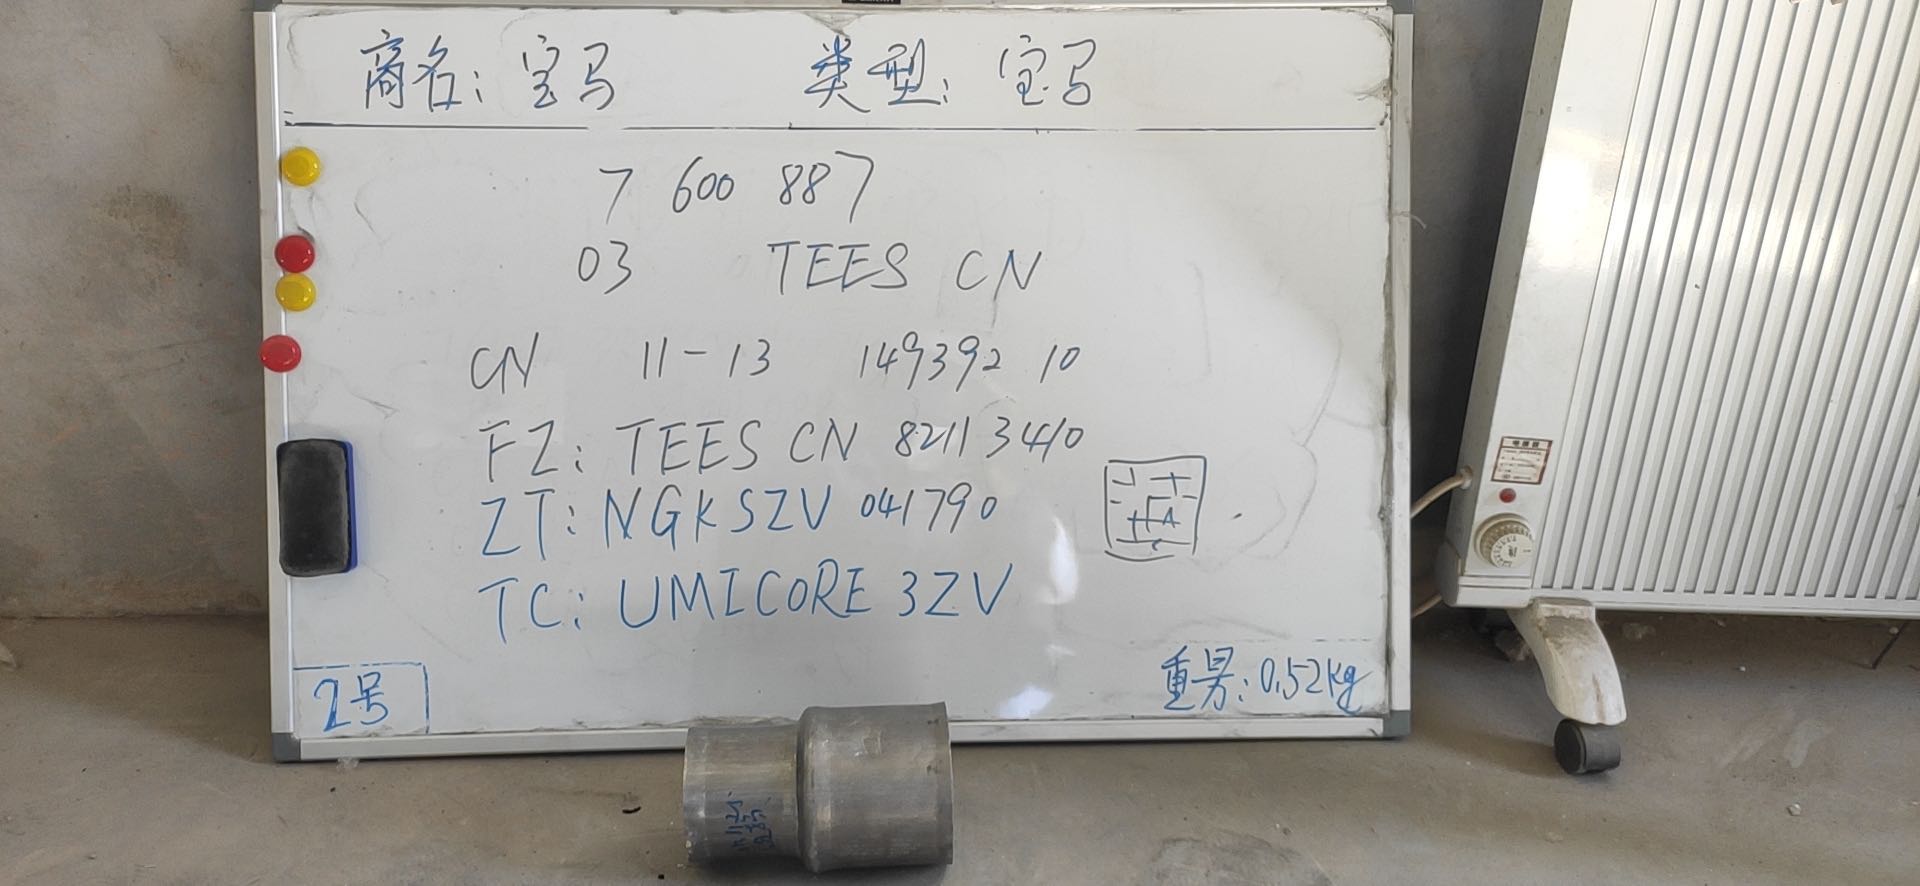 商名: 宝马 类型: 宝马
7 600 887
03 TEES CN
CN 11-13 149392 10
FZ: TEES CN 8211 3410
ZT: NGKSZV 041790
TC: UMICORE 3ZV
2号
重量: 0.52kg